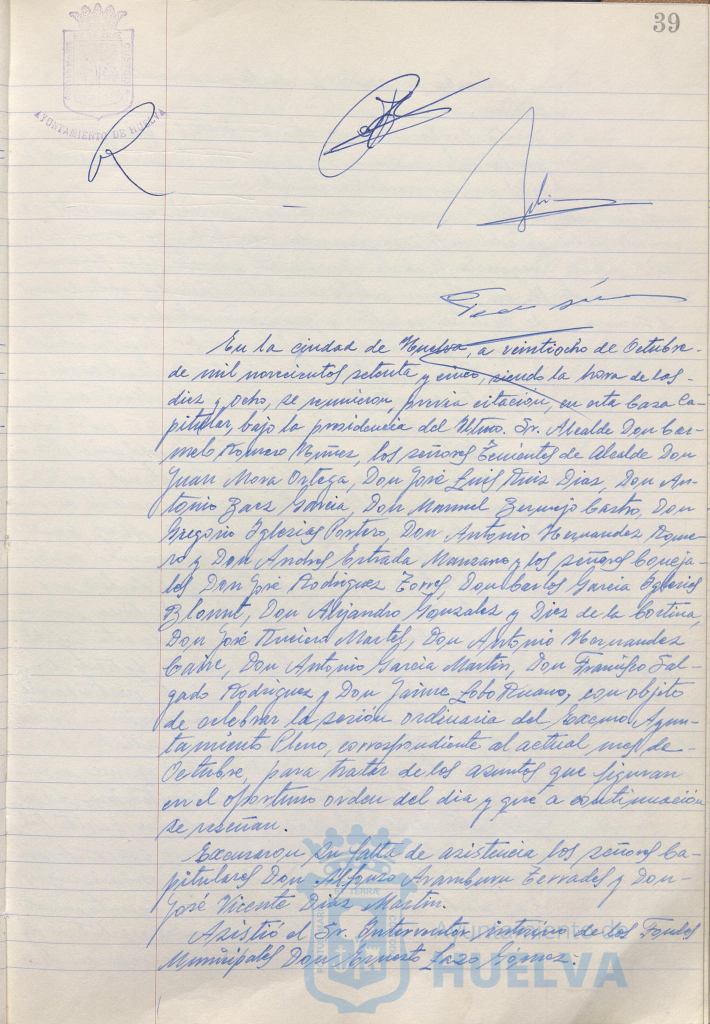 39
AYUNTAMIENTO DE HUELVA
En la ciudad de Huelva, a veintiocho de Octubre
de mil novecientos setenta y cinco, siendo la hora de las
diez y ocho, se reunieron, previa citación, en esta Casa Ca-
pitular, bajo la presidencia del Iltmo. Sr. Alcalde Don Car-
melo Romero Núñez, los señores Tenientes de Alcalde Don
Juan Mora Ortega, Don José Luis Ruiz Diaz, Don An-
tonio Baez Garcia, Don Manuel Bermejo Castro, Don
Gregorio Iglesias Portero, Don Antonio Hernandez Rome-
ro y Don Andres Estrada Manzano y los señores Conceja-
les Don José Rodriguez Torres, Don Carlos Garcia Iglesias
Don Alejandro Gonzalez y Diez de la Cortina,
Don José Martel, Don Antonio Hernandez
Don Antonio Garcia Martin, Don Francisco Sal-
gado Rodriguez y Don Jaime Lobo Ruano, con objeto
de celebrar la sesión ordinaria del Excmo. Ayun-
tamiento Pleno, correspondiente al actual mes de
Octubre, para tratar de los asuntos que figuran
en el oportuno orden del dia y que a continuación
se reseñan.
Excusaron su falta de asistencia los señores Ca-
pitulares Don Alfonso Aramburu Terrades y Don
José Vicente Diaz Martin.
Asistió el Sr. Interventor interino de los Fondos
Municipales Don Ernesto Lazo Gómez.
Ayuntamiento de
HUELVA